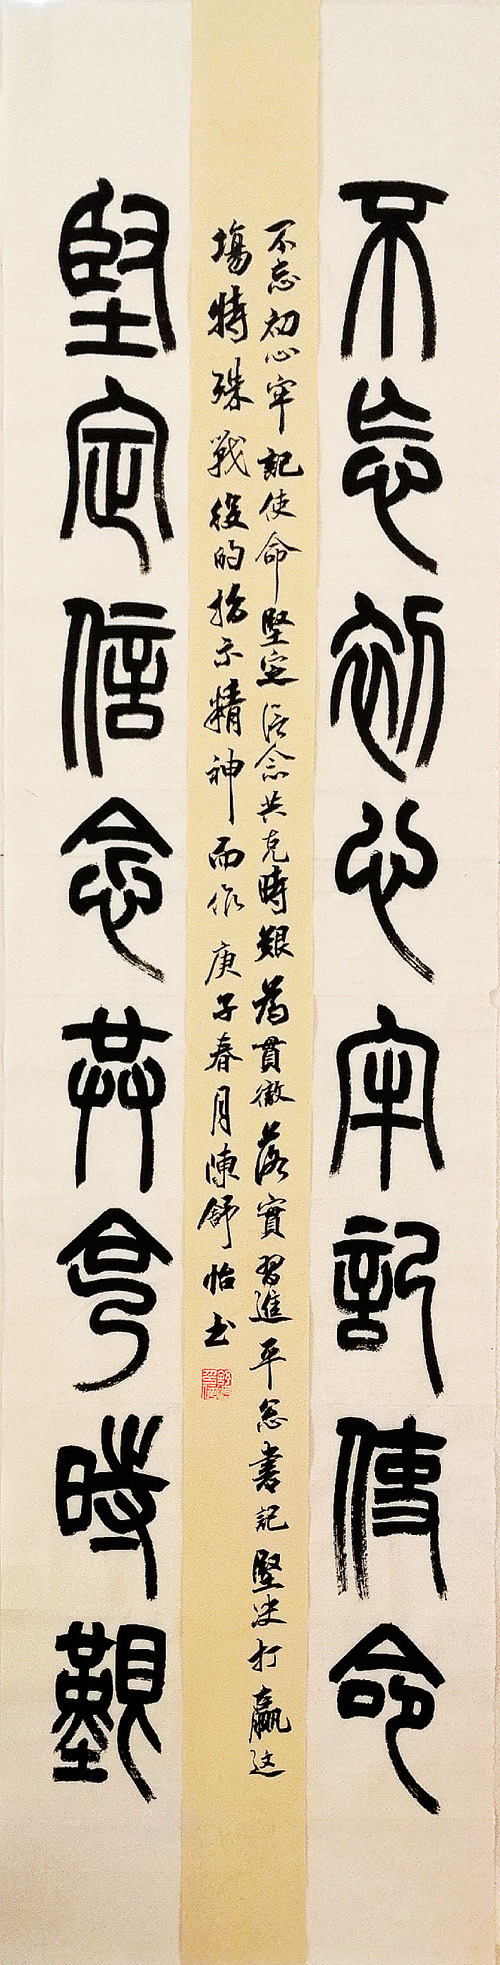 不忘初心牢記使命
堅定信念共克時艱
不忘初心牢記使命堅定信念共克時艱為貫徹落實習進平总書記堅决打贏这
場特殊戰役的指示精神而作庚子春月陳舒怡书